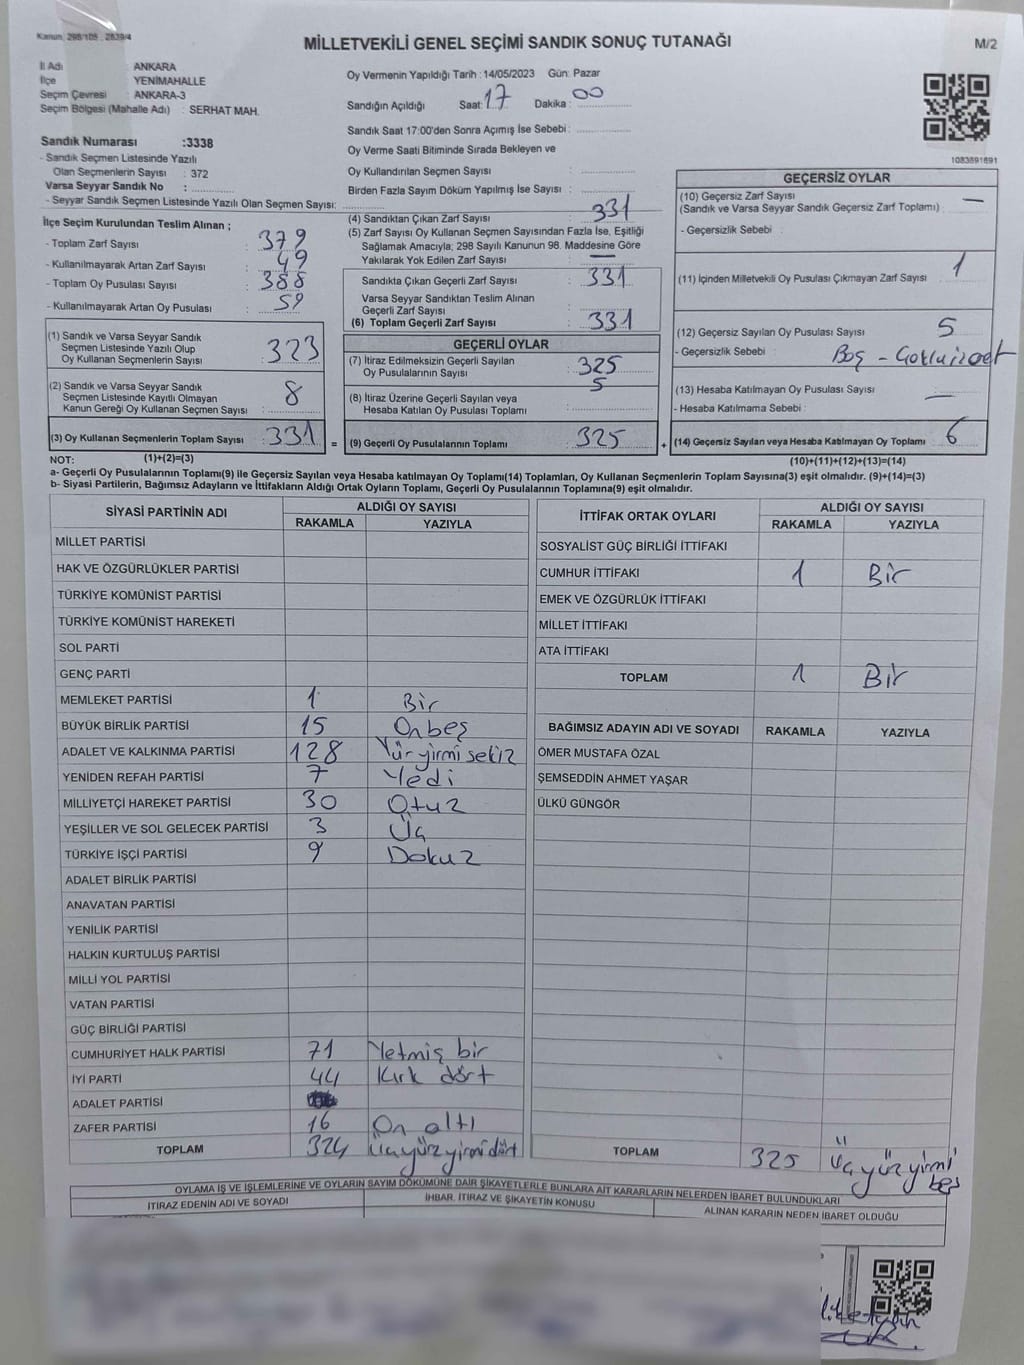 Kanun, 298/105 , 2839/4
MİLLETVEKİLİ GENEL SEÇİMİ SANDIK SONUÇ TUTANAĞI
M/2
İl Adı : ANKARA
İlçe : YENİMAHALLE
Seçim Çevresi : ANKARA-3
Seçim Bölgesi (Mahalle Adı) : SERHAT MAH.
Oy Vermenin Yapıldığı Tarih : 14/05/2023 Gün: Pazar
Sandığın Açıldığı Saat: 17 Dakika : 00
Sandık Saat 17:00'den Sonra Açımış İse Sebebi :
Oy Verme Saati Bitiminde Sırada Bekleyen ve
Oy Kullandırılan Seçmen Sayısı :
Birden Fazla Sayım Döküm Yapılmış İse Sayısı :
1083891691
Sandık Numarası :3338
- Sandık Seçmen Listesinde Yazılı
Olan Seçmenlerin Sayısı : 372
Varsa Seyyar Sandık No :
- Seyyar Sandık Seçmen Listesinde Yazılı Olan Seçmen Sayısı:
İlçe Seçim Kurulundan Teslim Alınan ;
- Toplam Zarf Sayısı : 379
- Kullanılmayarak Artan Zarf Sayısı : 49
- Toplam Oy Pusulası Sayısı : 388
- Kullanılmayarak Artan Oy Pusulası : 59
(1) Sandık ve Varsa Seyyar Sandık
Seçmen Listesinde Yazılı Olup
Oy Kullanan Seçmenlerin Sayısı : 323
(2) Sandık ve Varsa Seyyar Sandık
Seçmen Listesinde Kayıtlı Olmayan
Kanun Gereği Oy Kullanan Seçmen Sayısı : 8
(3) Oy Kullanan Seçmenlerin Toplam Sayısı : 331
(4) Sandıktan Çıkan Zarf Sayısı : 331
(5) Zarf Sayısı Oy Kullanan Seçmen Sayısından Fazla İse, Eşitliği
Sağlamak Amacıyla; 298 Sayılı Kanunun 98. Maddesine Göre
Yakılarak Yok Edilen Zarf Sayısı : —
Sandıkta Çıkan Geçerli Zarf Sayısı : 331
Varsa Seyyar Sandıktan Teslim Alınan
Geçerli Zarf Sayısı :
(6) Toplam Geçerli Zarf Sayısı : 331
GEÇERLİ OYLAR
(7) İtiraz Edilmeksizin Geçerli Sayılan
Oy Pusulalarının Sayısı : 325
5
(8) İtiraz Üzerine Geçerli Sayılan veya
Hesaba Katılan Oy Pusulası Toplamı :
= (9) Geçerli Oy Pusulalarının Toplamı : 325
GEÇERSİZ OYLAR
(10) Geçersiz Zarf Sayısı
(Sandık ve Varsa Seyyar Sandık Geçersiz Zarf Toplamı) : —
- Geçersizlik Sebebi :
(11) İçinden Milletvekili Oy Pusulası Çıkmayan Zarf Sayısı : 1
(12) Geçersiz Sayılan Oy Pusulası Sayısı : 5
- Geçersizlik Sebebi : Boş -
(13) Hesaba Katılmayan Oy Pusulası Sayısı : —
- Hesaba Katılmama Sebebi :
+ (14) Geçersiz Sayılan veya Hesaba Katılmayan Oy Toplamı : 6
NOT: (1)+(2)=(3)
(10)+(11)+(12)+(13)=(14)
a- Geçerli Oy Pusulalarının Toplamı(9) ile Geçersiz Sayılan veya Hesaba katılmayan Oy Toplamı(14) Toplamları, Oy Kullanan Seçmenlerin Toplam Sayısına(3) eşit olmalıdır. (9)+(14)=(3)
b- Siyasi Partilerin, Bağımsız Adayların ve İttifakların Aldığı Ortak Oyların Toplamı, Geçerli Oy Pusulalarının Toplamına(9) eşit olmalıdır.
SİYASİ PARTİNİN ADI ALDIĞI OY SAYISI
RAKAMLA YAZIYLA
MİLLET PARTİSİ
HAK VE ÖZGÜRLÜKLER PARTİSİ
TÜRKİYE KOMÜNİST PARTİSİ
TÜRKİYE KOMÜNİST HAREKETİ
SOL PARTİ
GENÇ PARTİ
MEMLEKET PARTİSİ 1 Bir
BÜYÜK BİRLİK PARTİSİ 15 Onbeş
ADALET VE KALKINMA PARTİSİ 128 Yüzyirmi sekiz
YENİDEN REFAH PARTİSİ 7 Yedi
MİLLİYETÇİ HAREKET PARTİSİ 30 Otuz
YEŞİLLER VE SOL GELECEK PARTİSİ 3 Üç
TÜRKİYE İŞÇİ PARTİSİ 9 Dokuz
ADALET BİRLİK PARTİSİ
ANAVATAN PARTİSİ
YENİLİK PARTİSİ
HALKIN KURTULUŞ PARTİSİ
MİLLİ YOL PARTİSİ
VATAN PARTİSİ
GÜÇ BİRLİĞİ PARTİSİ
CUMHURİYET HALK PARTİSİ 71 Yetmiş bir
İYİ PARTİ 44 Kırk dört
ADALET PARTİSİ
ZAFER PARTİSİ 16 On altı
TOPLAM 324 Üçyüzyirmidört
İTTİFAK ORTAK OYLARI ALDIĞI OY SAYISI
RAKAMLA YAZIYLA
SOSYALİST GÜÇ BİRLİĞİ İTTİFAKI
CUMHUR İTTİFAKI 1 Bir
EMEK VE ÖZGÜRLÜK İTTİFAKI
MİLLET İTTİFAKI
ATA İTTİFAKI
TOPLAM 1 Bir
BAĞIMSIZ ADAYIN ADI VE SOYADI RAKAMLA YAZIYLA
ÖMER MUSTAFA ÖZAL
ŞEMSEDDİN AHMET YAŞAR
ÜLKÜ GÜNGÖR
TOPLAM 325 Üçyüzyirmi
beş
OYLAMA İŞ VE İŞLEMLERİNE VE OYLARIN SAYIM DÖKÜMÜNE DAİR ŞİKAYETLERLE BUNLARA AİT KARARLARIN NELERDEN İBARET BULUNDUKLARI
İTİRAZ EDENİN ADI VE SOYADI İHBAR, İTİRAZ VE ŞİKAYETİN KONUSU ALINAN KARARIN NEDEN İBARET OLDUĞU